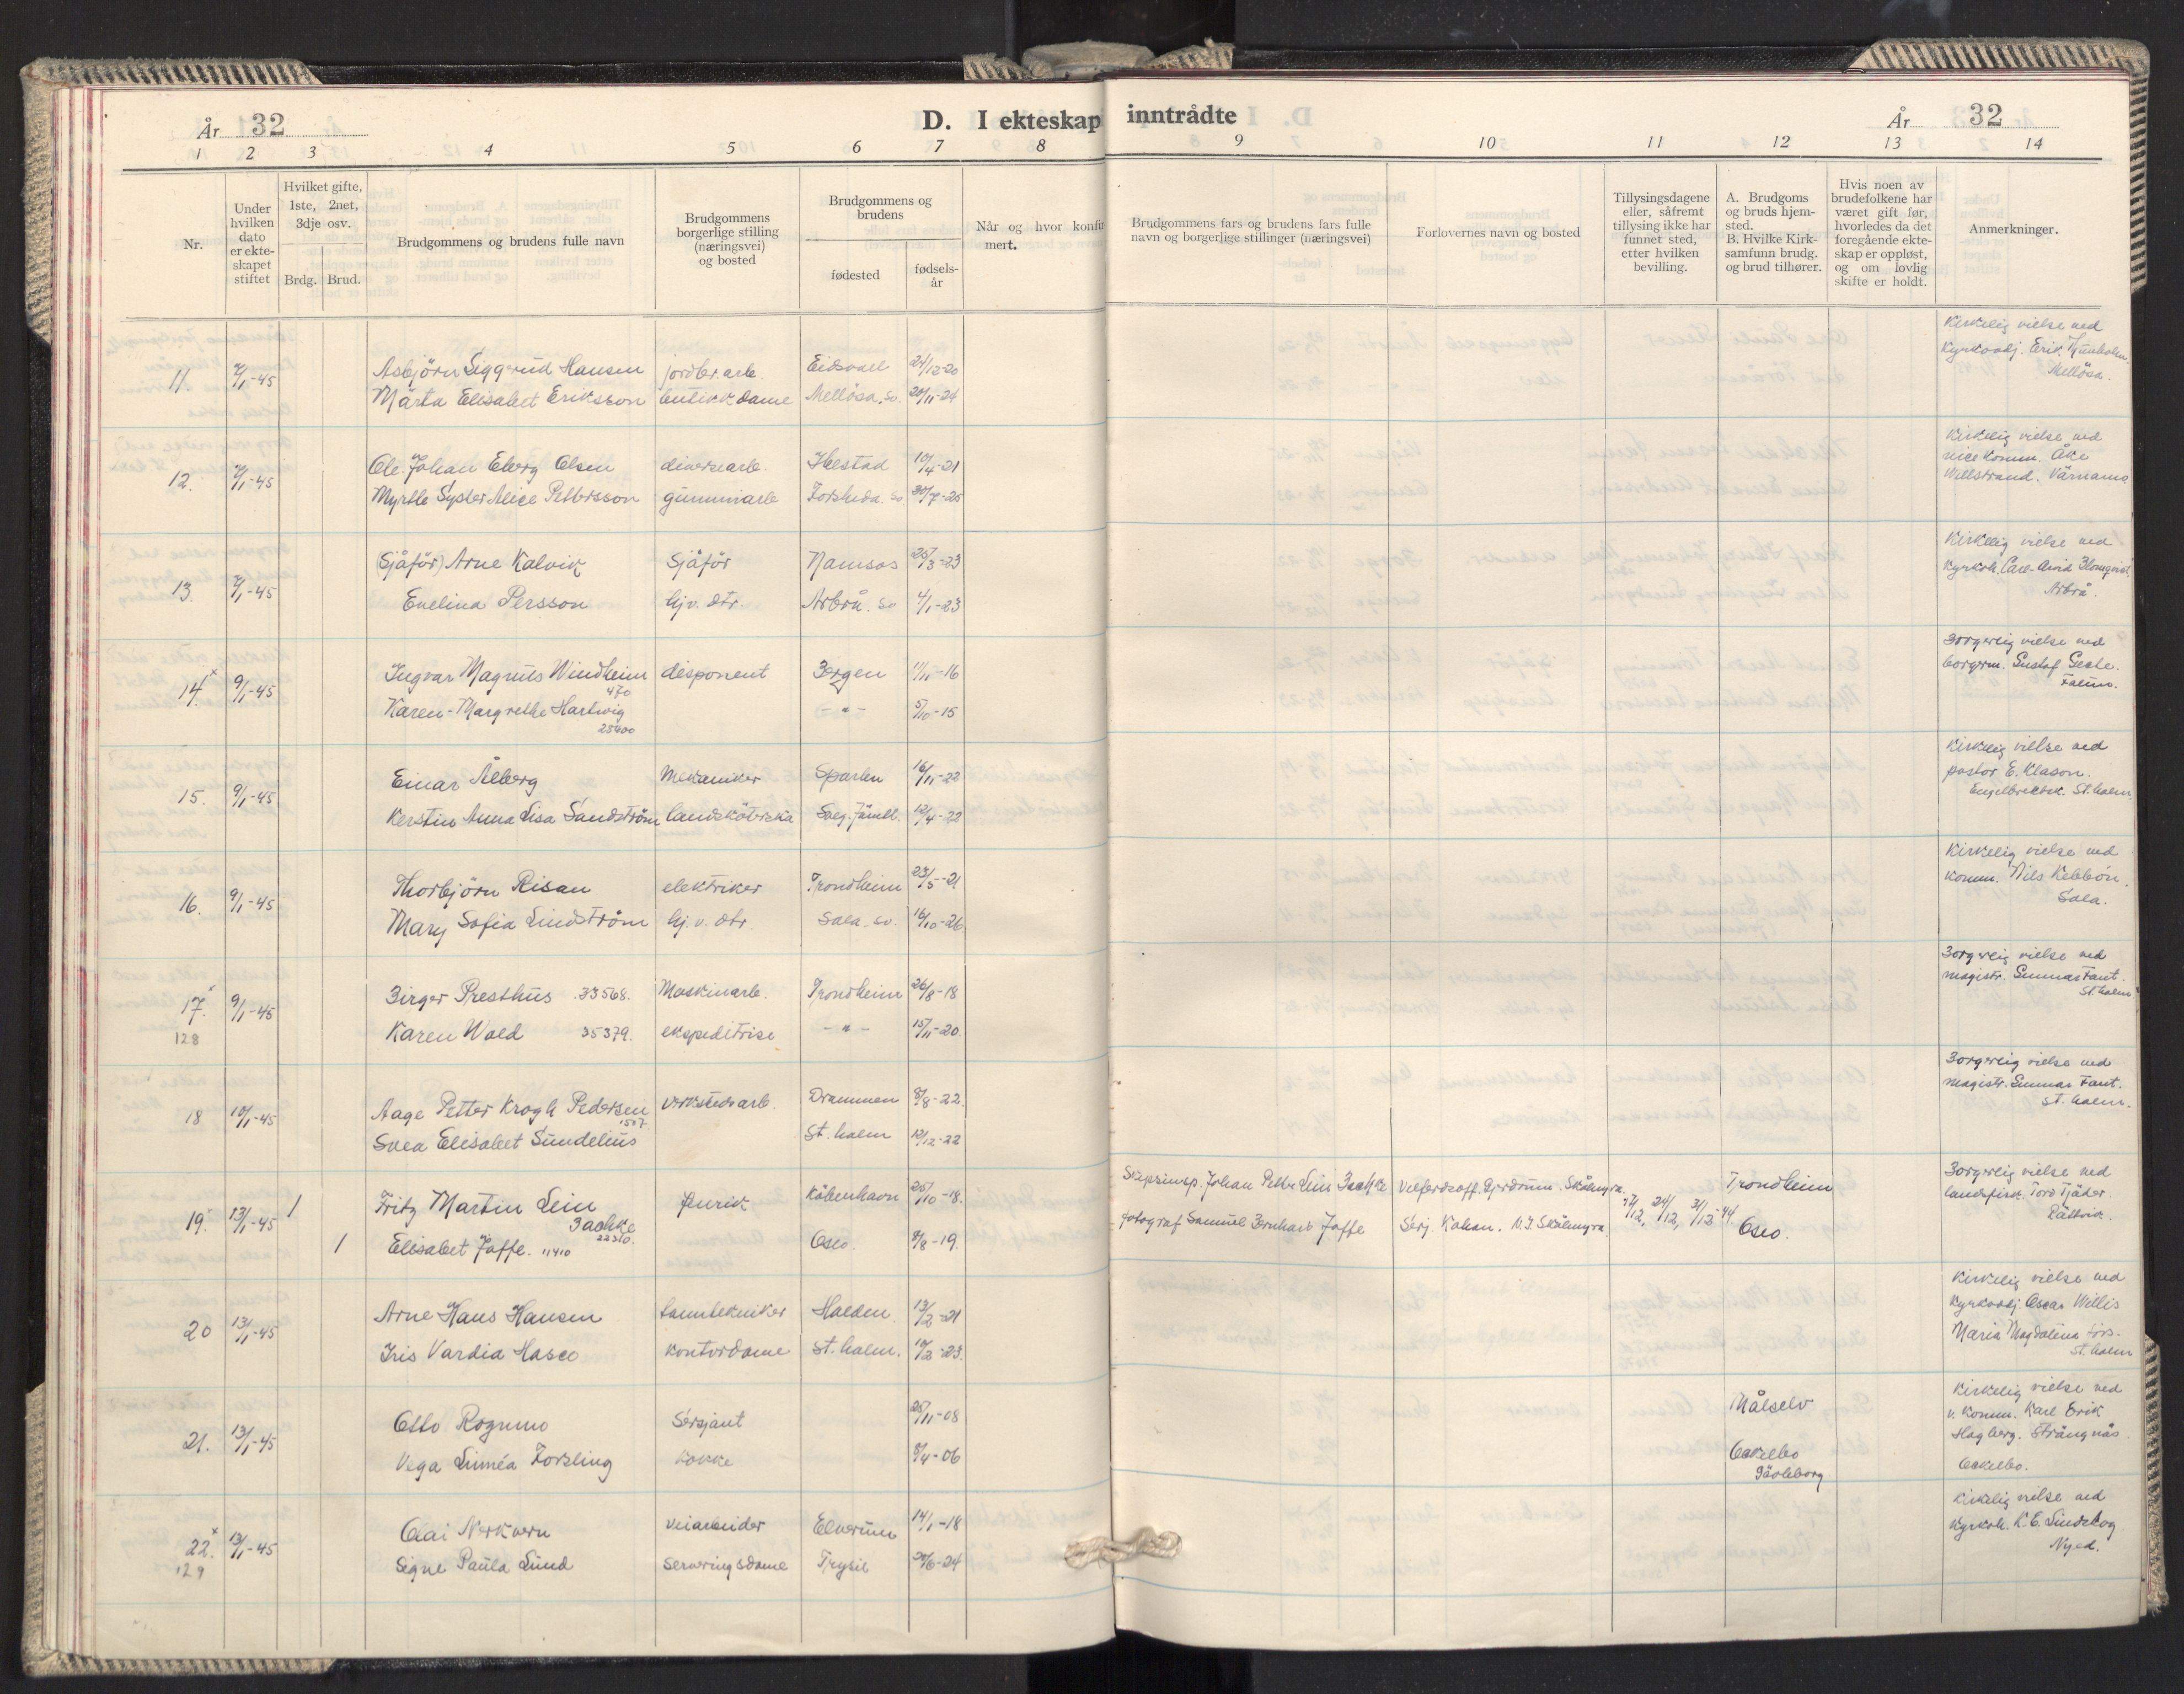 År 32
D. I ekteskap inntrådte
År 32
1 2 3 4 5 6 7 8 9 10 11 12 13 14
Nr.
Under hvilken dato er ekte-skapet stiftet
Hvilket gifte, 1ste, 2net, 3dje osv.
Brdg. Brud.
Brudgommens og brudens fulle navn
Brudgommens borgerlige stilling (næringsvei) og bosted
Brudgommens og brudens
fødested
fødsels-år
Når og hvor konfir
mert.
Brudgommens fars og brudens fars fulle navn og borgerlige stillinger (næringsvei)
Forlovernes navn og bosted
Tillysingsdagene eller, såfremt tillysing ikke har funnet sted, etter hvilken bevilling.
A. Brudgoms og bruds hjem-sted.
B. Hvilke Kirk-samfunn brudg. og brud tilhører.
Hvis noen av brudefolkene har været gift før, hvorledes da det foregående ekte-skap er oppløst, og om lovlig skifte er holdt.
Anmerkninger.
11. 7/1-45 Asbjörn Siggerud Hansen jordbr.arb. Eidsvoll 24/12-20
Märta Elisabet Eriksson butikkdame Mellösa, so. 20/11-24
Kirkelig vielse ved
kyrkoadj. Erik
Mellösa.
12. 7/1-45 Ole Johan Eberg Olsen diversearb. Ibestad 10/4-21
Myrtle Syster Alice Pettersson gummiarb Forsheda. so. 30/7-25
Kirkelig vielse ved
vicekomm. Åke
Willstrand. Värnamo
13. 7/1-45 (Sjåför) Arne Kalvik Sjåför Namsos 25/3-23
Evelina Persson hj.v. dtr. Arbrå. so 4/1-23
Kirkelig vielse ved
kyrkoh. Carl-Arvid Blomqvist
Arbrå.
14. x 9/1-45 Ingvar Magnus Windheim disponent Bergen 11/11-16
470
Karen-Margrethe Hartwig - " - 5/10-15
25400
Borgerlig vielse ved
borgerm. Gustaf Geete.
Falun.
15. 9/1-45 Einar Ålberg Mekaniker Sparbu 16/11-22
Kerstin Anna Lisa Sandström landsköterska Soleg. Jämtl. 12/4-22
Kirkelig vielse ved
pastor E. Klason.
Engelbrektsk. St.holm
16. 9/1-45 Thorbjörn Risan elektriker Trondheim 23/5-21
Mary Sofia Lindström hj. v. dtr. Sala. so. 16/10-26
Kirkelig vielse ved
komm. Nils Kebbon.
Sala.
17. x 9/1-45 Birger Presthus 33568. Maskinarb. Trondheim 26/8-18
128 Karen Wold 35379. ekspeditrise - " - 15/11-20
Borgerlig vielse ved
magistr. Gunnar Fant.
St. holm
18 10/1-45 Aage Petter Krogh Pedersen verkstedsarb. Drammen 8/8-22.
1507.
Svea Elisabet Sundelius St. holm 12/12-22
Borgerlig vielse ved
magistr. Gunnar Fant.
St. holm.
19. 13/1-45 1 Fritz Martin Lein Jurik København 25/10-18. Skipsinsp. Johan Petter Lein Bachke Velferdsoff. Gjerdrum. Skålmyra. 17/12, 24/12, 31/12-44. Trondheim
Bachke
22310.
1 Elisabet Jaffe. 11410 Oslo. 8/8-19. Fotograf Samuel Bernhard Jaffe Serj. Kahan. N.I Skålmyra. Oslo.
Borgerlig vielse ved
landsfisk. Tord Tjäder.
Rättvik.
20 13/1-45 Arne Hans Hansen tanntekniker Halden 13/2-21
Iris Vardia Hasso kontordame St. holm. 10/2-23.
Kirkelig vielse ved
kyrkoadj. Oscar Willis
Maria Magdalena förs.
St. holm
21. 13/1-45 Otto Rognmo Sersjant 25/11-08 Målselv
Vega Linnéa Forsling Kokke 8/4-06 Ockelbo
Gävleborg
Kirkelig vielse ved
v. komm. Karl Erik
Hagberg. Strängnäs
Ockelbo.
22. x 13/1-45 Olai Nerkvern Veiarbeider Elverum 14/1-18
129 Signe Paula Lund Serveringsdame Trysil 24/6-24
Kirkelig vielse ved
kyrkoh. K.E. Lindskog
Nyed.